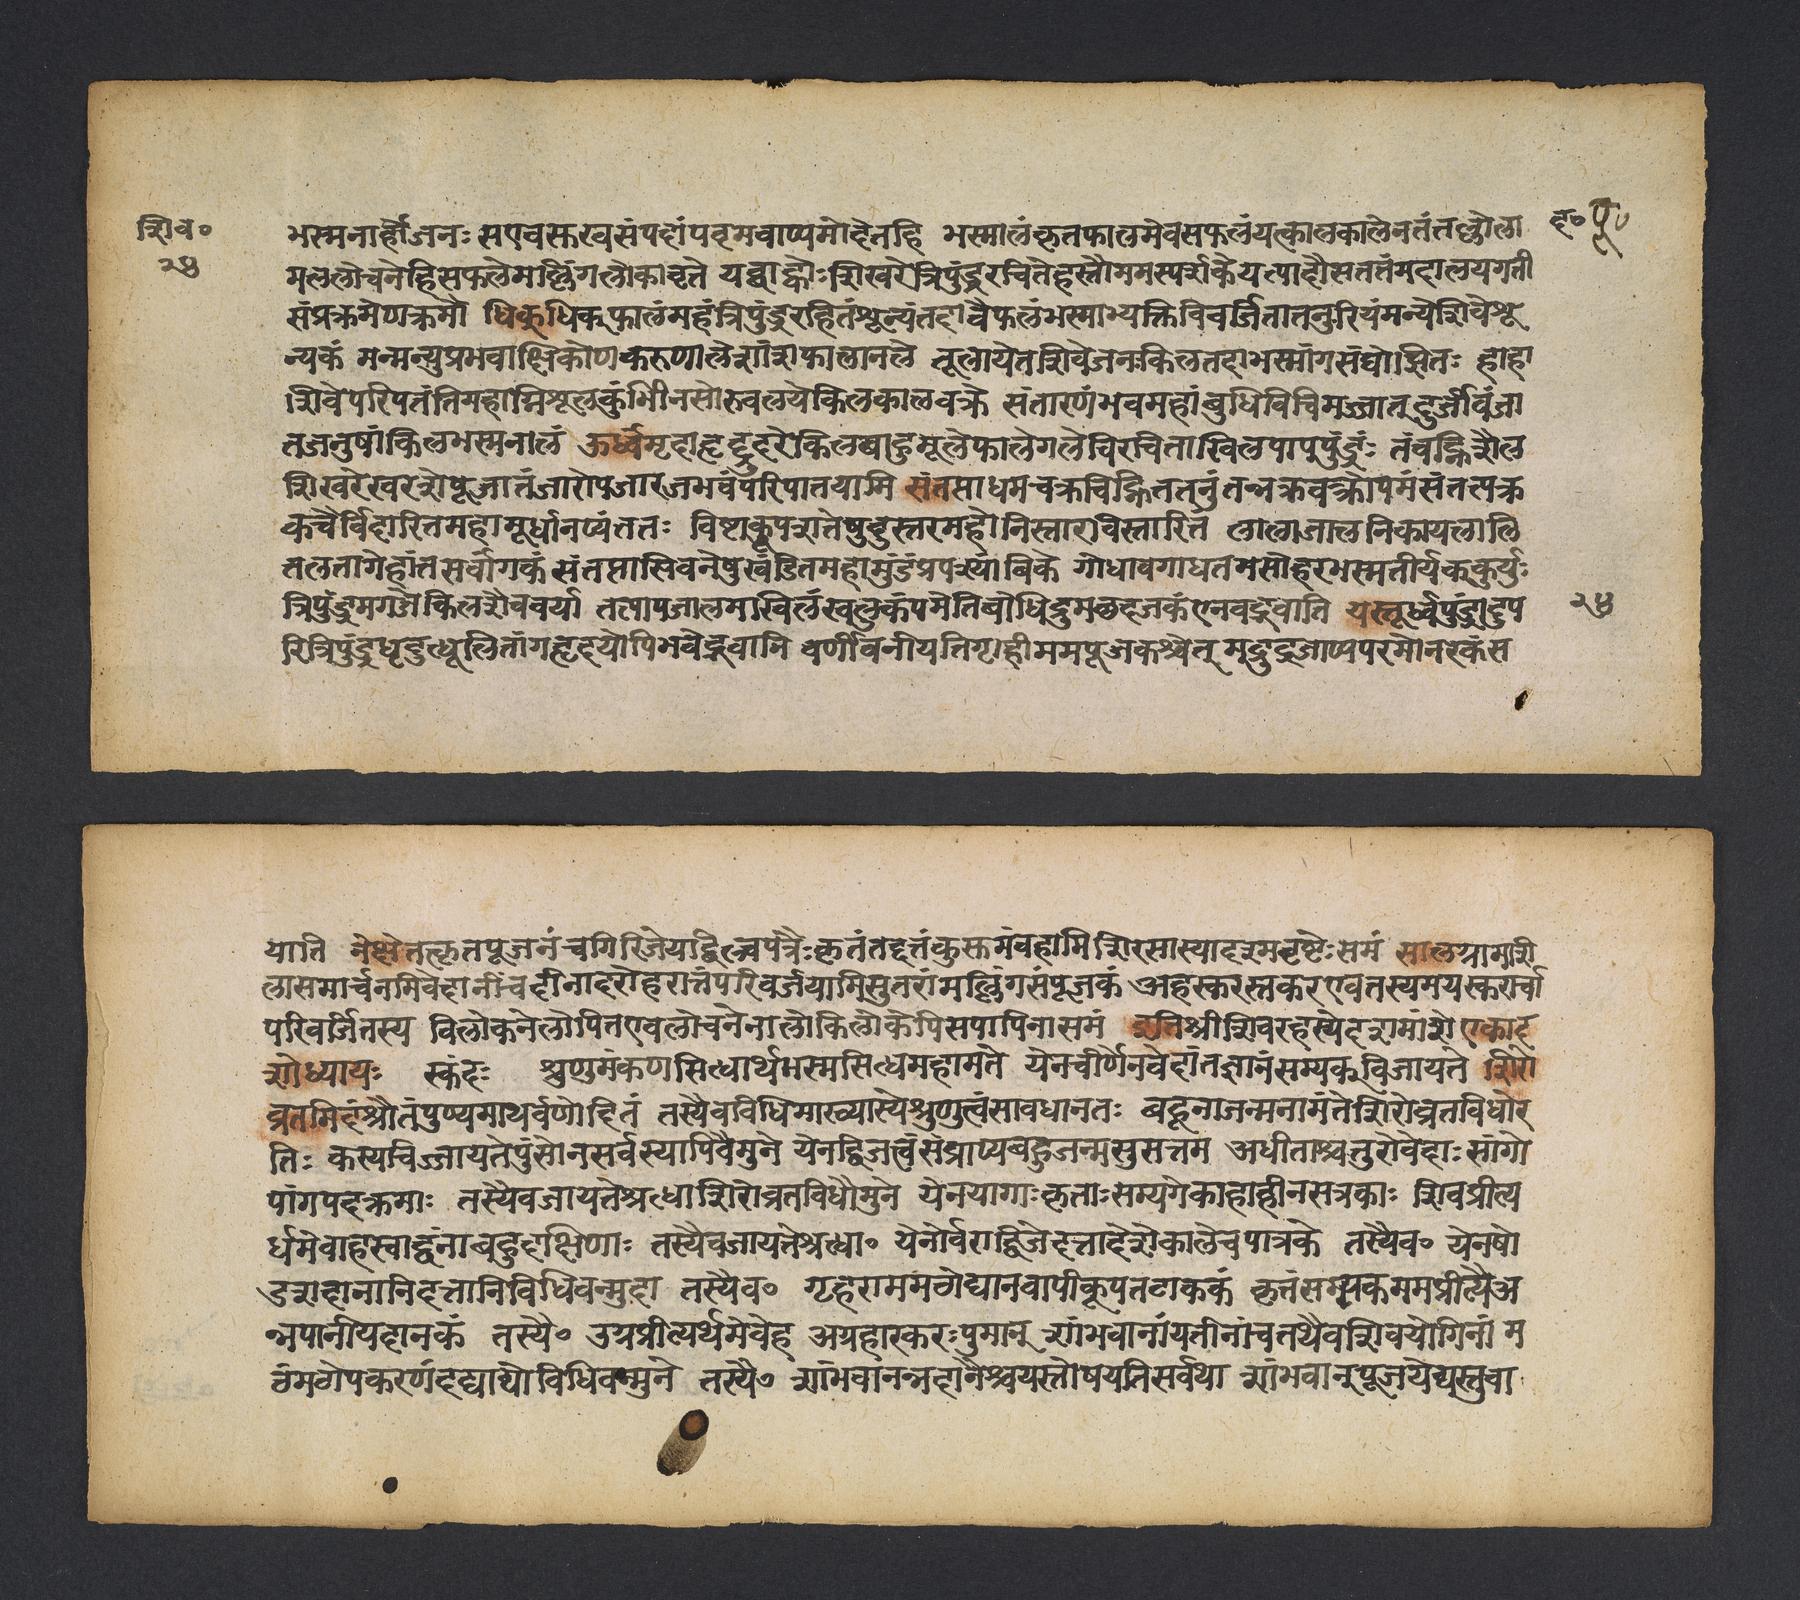 शिव॰
२४
द॰ पू॰
भस्मनार्हाजनः सएवसक्तखसंपदांपदमवाप्यमोदेतहि भस्मालंकृतफालमेवसफलंयत्कालकालेनतंतल्लोला
मललोचनेहिसफलेमल्लिंगलोकादृते यद्बाह्वोःशिखरेत्रिपुंड्ररचितेहस्तौममस्पर्शकेयत्पादौसततंमदालयगती
संप्रक्रमेणक्रमौ धिक्धिक्फालमहंत्रिपुंड्ररहितंशून्यंतदावैफलंभस्माभ्यक्तिविवर्जितातनुरियंमन्येशिवेशू
न्यकं मन्मन्युप्रभवाग्निकोणकरुणालेशांशफालानले तूलायेतशिवेजनःकिलतदाभस्मांगसंघोज्ञितः हाहा
शिवेपरिपतंतिमहाग्निशूलकुंभीनसोरुवलयेकिलकालवक्त्रे संतारणंभवमहांबुधिवीचिमज्जातदुर्जीविजा
तजनुषांकिलभस्मनालं ऊर्ध्वमृदाहृद्दुदरेकिलबाहुमूलेफालेगलेविरचिताखिलपापपुंड्रं तंवह्निशैल
शिखरेखरशोपूजातंजारोपजारजभवंपरिपातयामि संतप्ताधमचक्रचिह्निततनुंतन्नक्रवक्त्रोपमंसंतत्पक्र
कचैर्विदारितमहामूर्धानप्यंततः विष्टाकूपशतेषुदुस्तरमहोनिस्तारविस्तारितं लालाजालनिकायलालि
तलतागेहांतसर्वांगकं संतप्तासिवनेषुखंडितमहोमुंडंप्रपश्यांबिके गोधावगाधतमसोहरभस्मतीर्यक्कुर्युः
त्रिपुंड्रमगजेकिलशैववर्या तत्पापजालमखिलंखलुकंपमेतिबोधिद्रुमछदजकंएनवद्भवाति यस्तूर्ध्वपुंड्रादुप
रित्रिपुंड्रधृदुत्धूलितांगहृदयोपिभवेद्भवानि वर्णीवनीयतिगृहीममपूजकश्चेत् मुद्गुद्गुजाप्यपरमोनरकंस
२४
याति नेक्षेतत्कृतपूजनंचगिरिजेयद्बिल्वपत्रैःकृतंतद्दत्तंकुसुमंवहामिशिरसास्यादश्मवृष्टेःसमं सालग्रामशि
लासमार्चनमिवेदानींचदीनादशेहरात्तंपरिवर्जयामिसुतरांमल्लिंगसंपूजकं अहस्करस्तकरएवतस्यमयस्करार्चा
परिवर्जितस्य विलोकनेलोपितएवलोचनेनालोकिलोकेपिसपापिनासमं इतिश्रीशिवरहस्येदशमांशेएकाद
शोध्यायः स्कंदः श्रुणुमंकणसिध्धार्थभस्मसिध्धमहामते येनचीर्णेनवेदांतज्ञानंसम्यक्विजायते शिरो
व्रतमिदंश्रौतंपुण्यमाथर्वणोहितं तस्यैवविधिमाख्यास्येश्रुणुत्वंसावधानतः बहूनाजन्मनामंतेशिरोव्रतविधौर
तिः कस्यचिज्जायतेपुंसोनसर्वस्यापिवैमुने येनद्विजत्वंसंप्राप्यबहुजन्मसुसत्तम अधीताश्चतुरोवेदाःसांगो
पांगपदक्रमाः तस्यैवजायतेश्रध्धाशिरोव्रतविधौमुने येनयागाःकृताःसम्यगेकाहाहीनसत्रकाः शिवप्रीत्य
र्थमेवाहस्वाद्वंनाबहुदक्षिणाः तस्यैवजायतेश्रध्धा॰ येनोर्वराद्विजेदत्तादेशेकालेचपात्रके तस्यैव॰ येनषो
डशदानानिदत्तानिविधिवन्मुदा तस्यैव॰ गृहरामममठोद्यानवापीकूपतटाककं कृतंसम्यकममप्रीत्यैअ
न्नपानीयदानकं तस्यै॰ उग्रप्रीत्यर्थमेवेह अग्रहारकरःपुमान् शांभवानांयतीनांचतथैवशिवयोगिनां म
ठंमठोपकरणंदद्याद्योविधिवन्मुने तस्यै॰ शांभवानन्नदानैश्चयस्तोषयतिसर्वथा शांभवान्पूजयेद्यस्तुवा